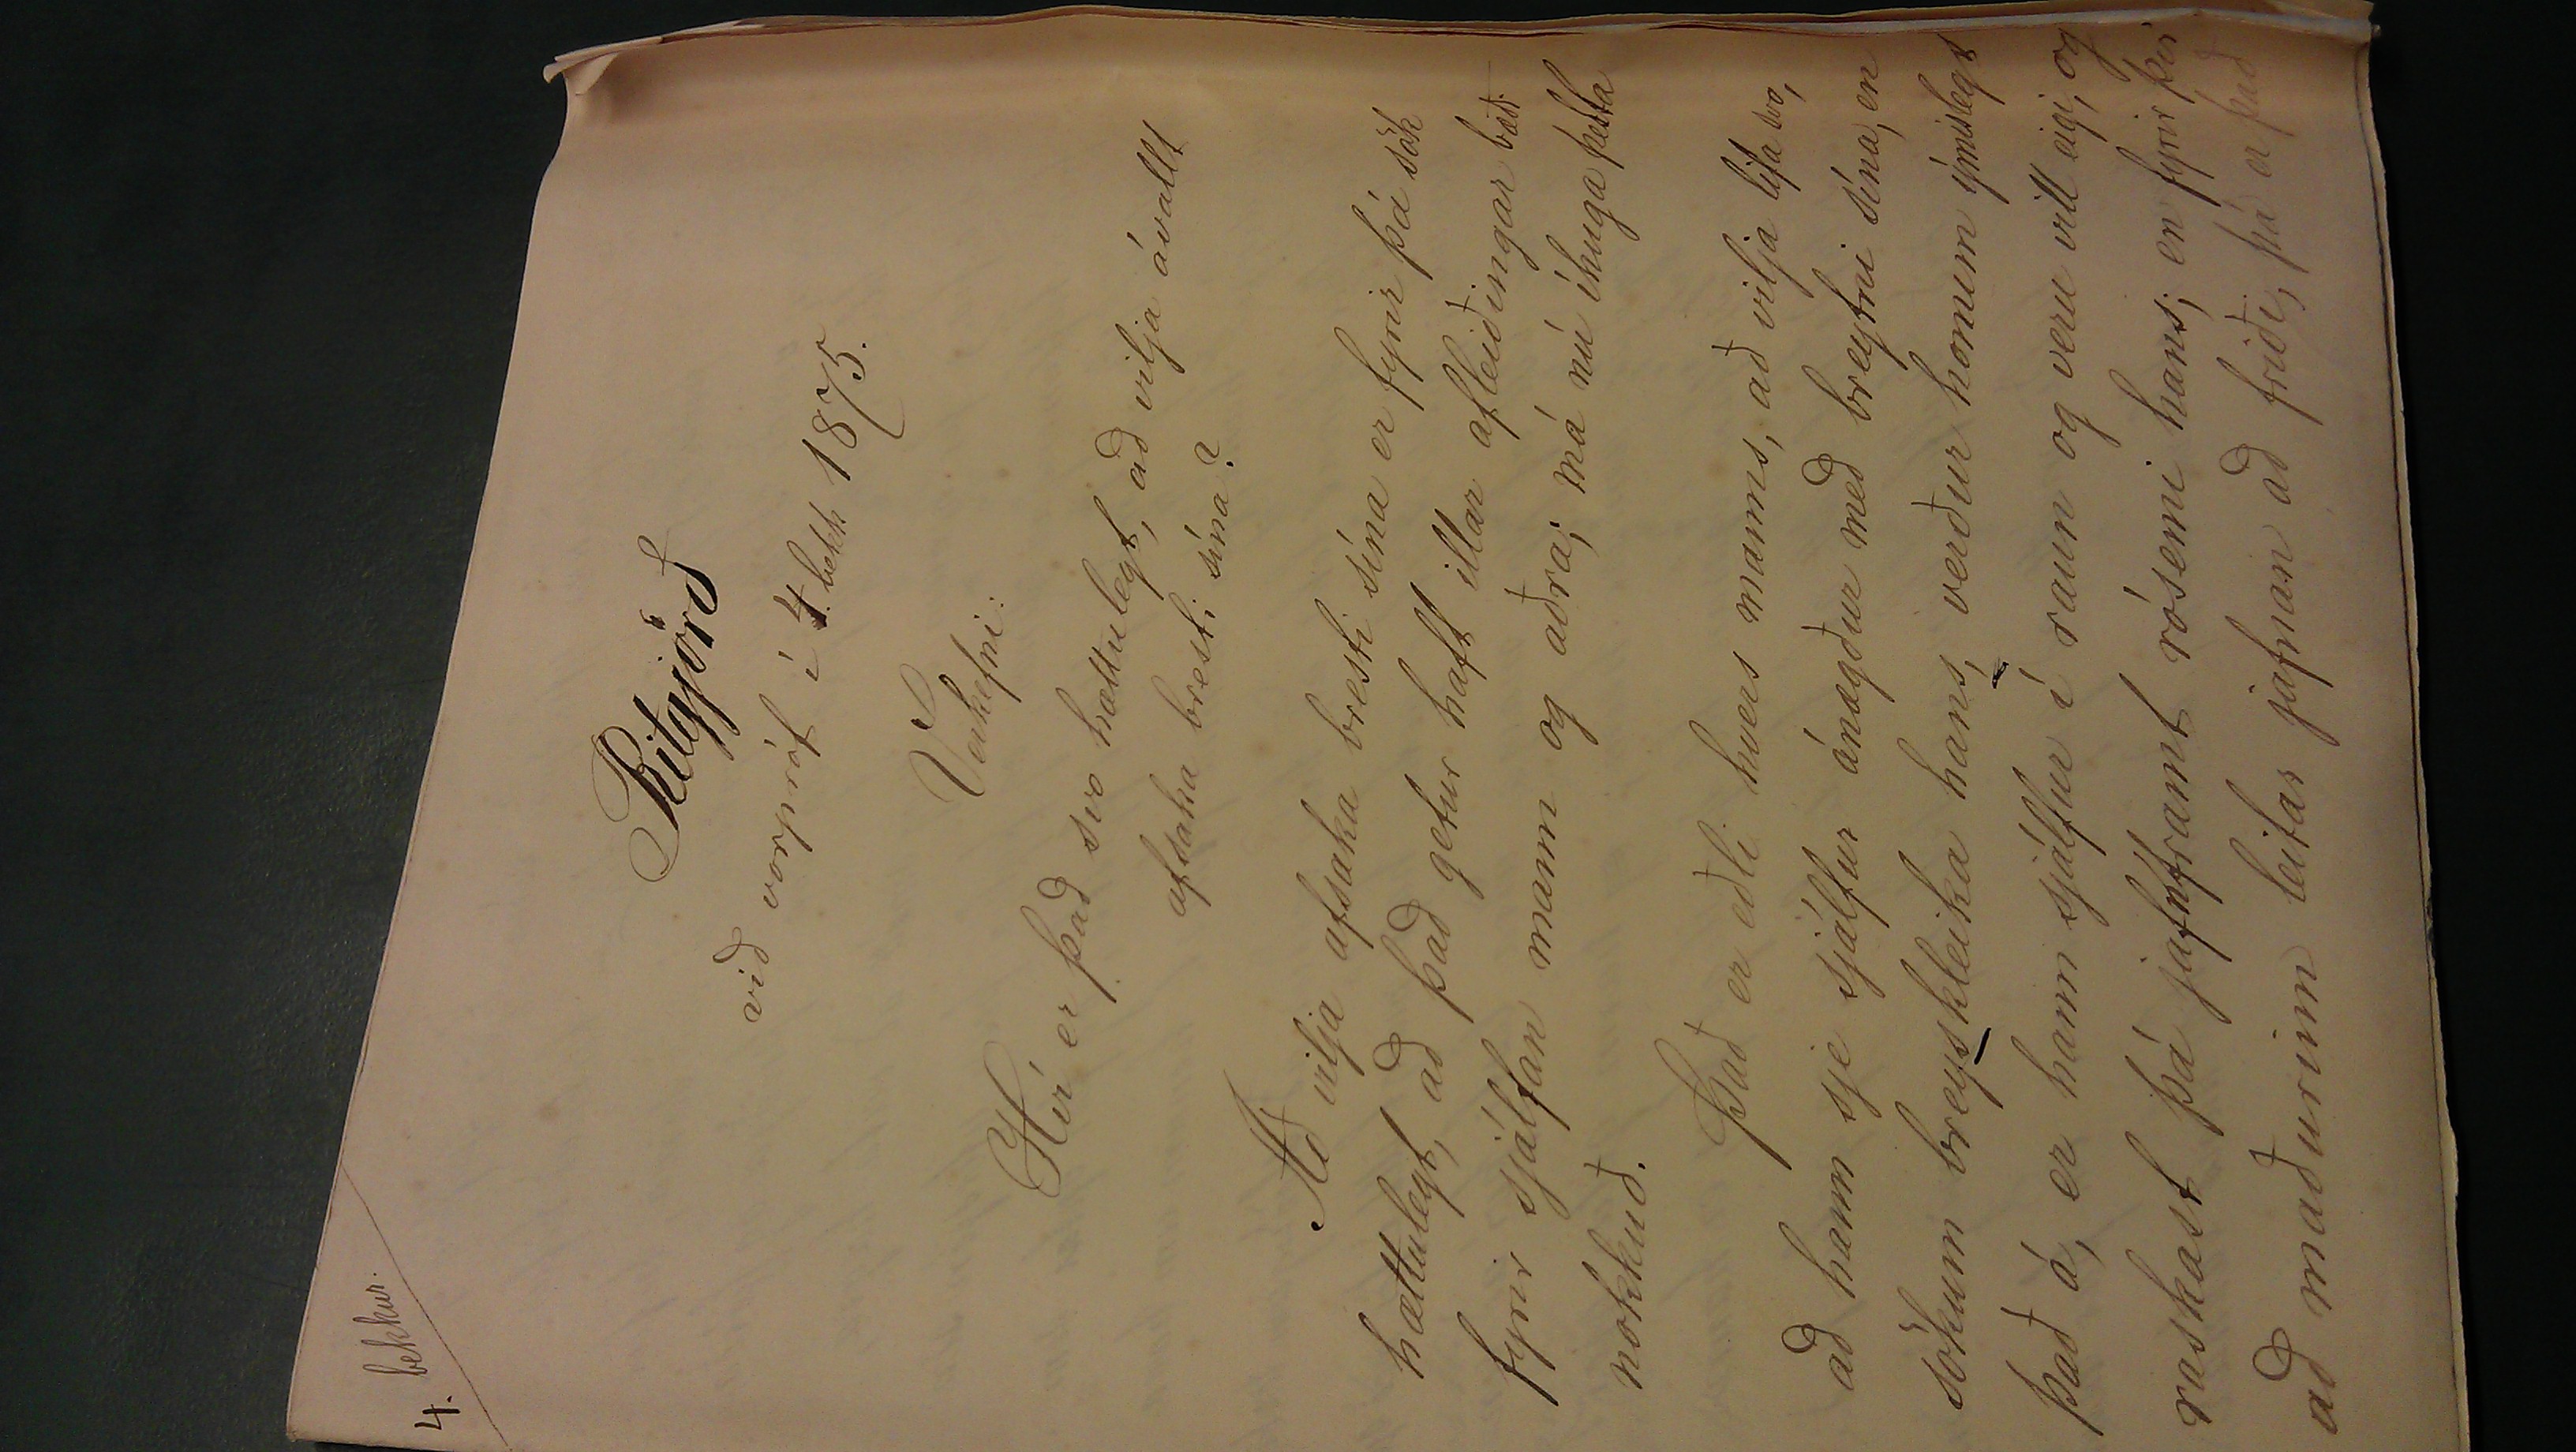 4. bekkur.
Ritgjörð
við vorpróf í 4. bekk 1875.
Verkefni:
Hví er það svo hættulegt, að vilja ávallt
afsaka bresti sína?
Að vilja afsaka bresti sína er fyrir þá sök
hættulegt, að það getur haft illar afleiðingar bæði
fyrir sjálfan mann og aðra; má nú íhuga þetta
nokkuð.
Það er eðli hvers manns, að vilja lifa svo,
að hann sje sjálfur ánægður með breytni sína, en
sökum breyskleika hans, verður honum ýmislegt
það á, er hann sjálfur í raun og veru vill eigi, og
raskast þá jafnframt rósemi hans; en fyrir því
að maðurinn leitar jafnan að friði, þá er það